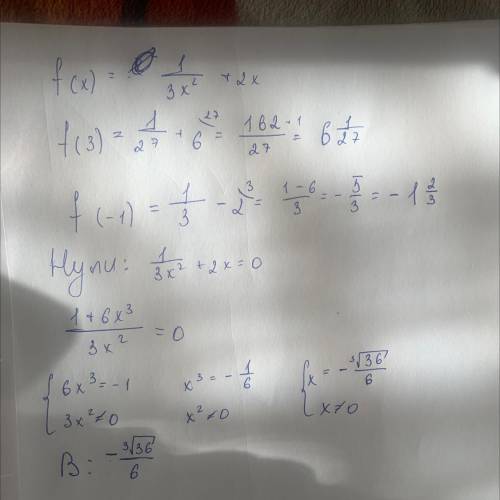 f(x) = 1/3x² + 2x
f(3) = 1/27 + 6^{27} = 162+1/27 = 6 1/27
f(-1) = 1/3 - 2^{3} = 1-6/3 = -5/3 = -1 2/3
Нули: 1/3x² + 2x = 0
1+6x³/3x² = 0
{ 6x³ = -1 x³ = -1/6 { x = -∛36/6
3x² ≠ 0 x² ≠ 0 x ≠ 0
В: -∛36/6